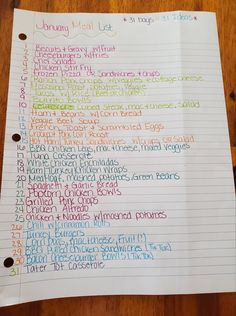 January Meal List
* 31 Days * 31 Ideas *
1 Beans + Gravy w/Fruit
2 Cheeseburgers w/Fries
3 Chef Salads
4 Chicken Stir Fry
5 Frozen Pizza or Sandwiches + Chips
Pork Chops w/Veggies + Cottage Cheese
Roast, Potatoes, Veggie
Tacos w/
Burrito Bowls
Cubed Steak, Mac + Cheese, Salad
11 Ham + Beans w/Corn Bread
12 Veggie Beef Soup
13 French Toast + Scrambled Eggs
14 Crockpot Pork Roast
15 Hot Ham/Turkey Sandwiches w/Chips or Salad
16 BBQ Chicken, Mac + Cheese, Mixed Veggies
17 Tuna Casserole
18 White Chicken Enchiladas
19 Ham/Turkey/Chicken Wraps
20 Meatloaf, Mashed Potatoes, Green Beans
21 Spaghetti + Garlic Bread
22 Popcorn Chicken Bowls
23 Grilled Pork Chops
24 Chicken Alfredo
25 Chicken + Noodles w/Mashed Potatoes
26 Chili w/Cinnamon Rolls
27 Turkey Burgers
28 Corn Dogs, Mac + Cheese, Fruit (?)
29 BBQ Pulled Chicken Sandwiches (Tik Tok)
30 Bacon Cheeseburger Bowls (Tik Tok)
31 Tater Tot Casserole